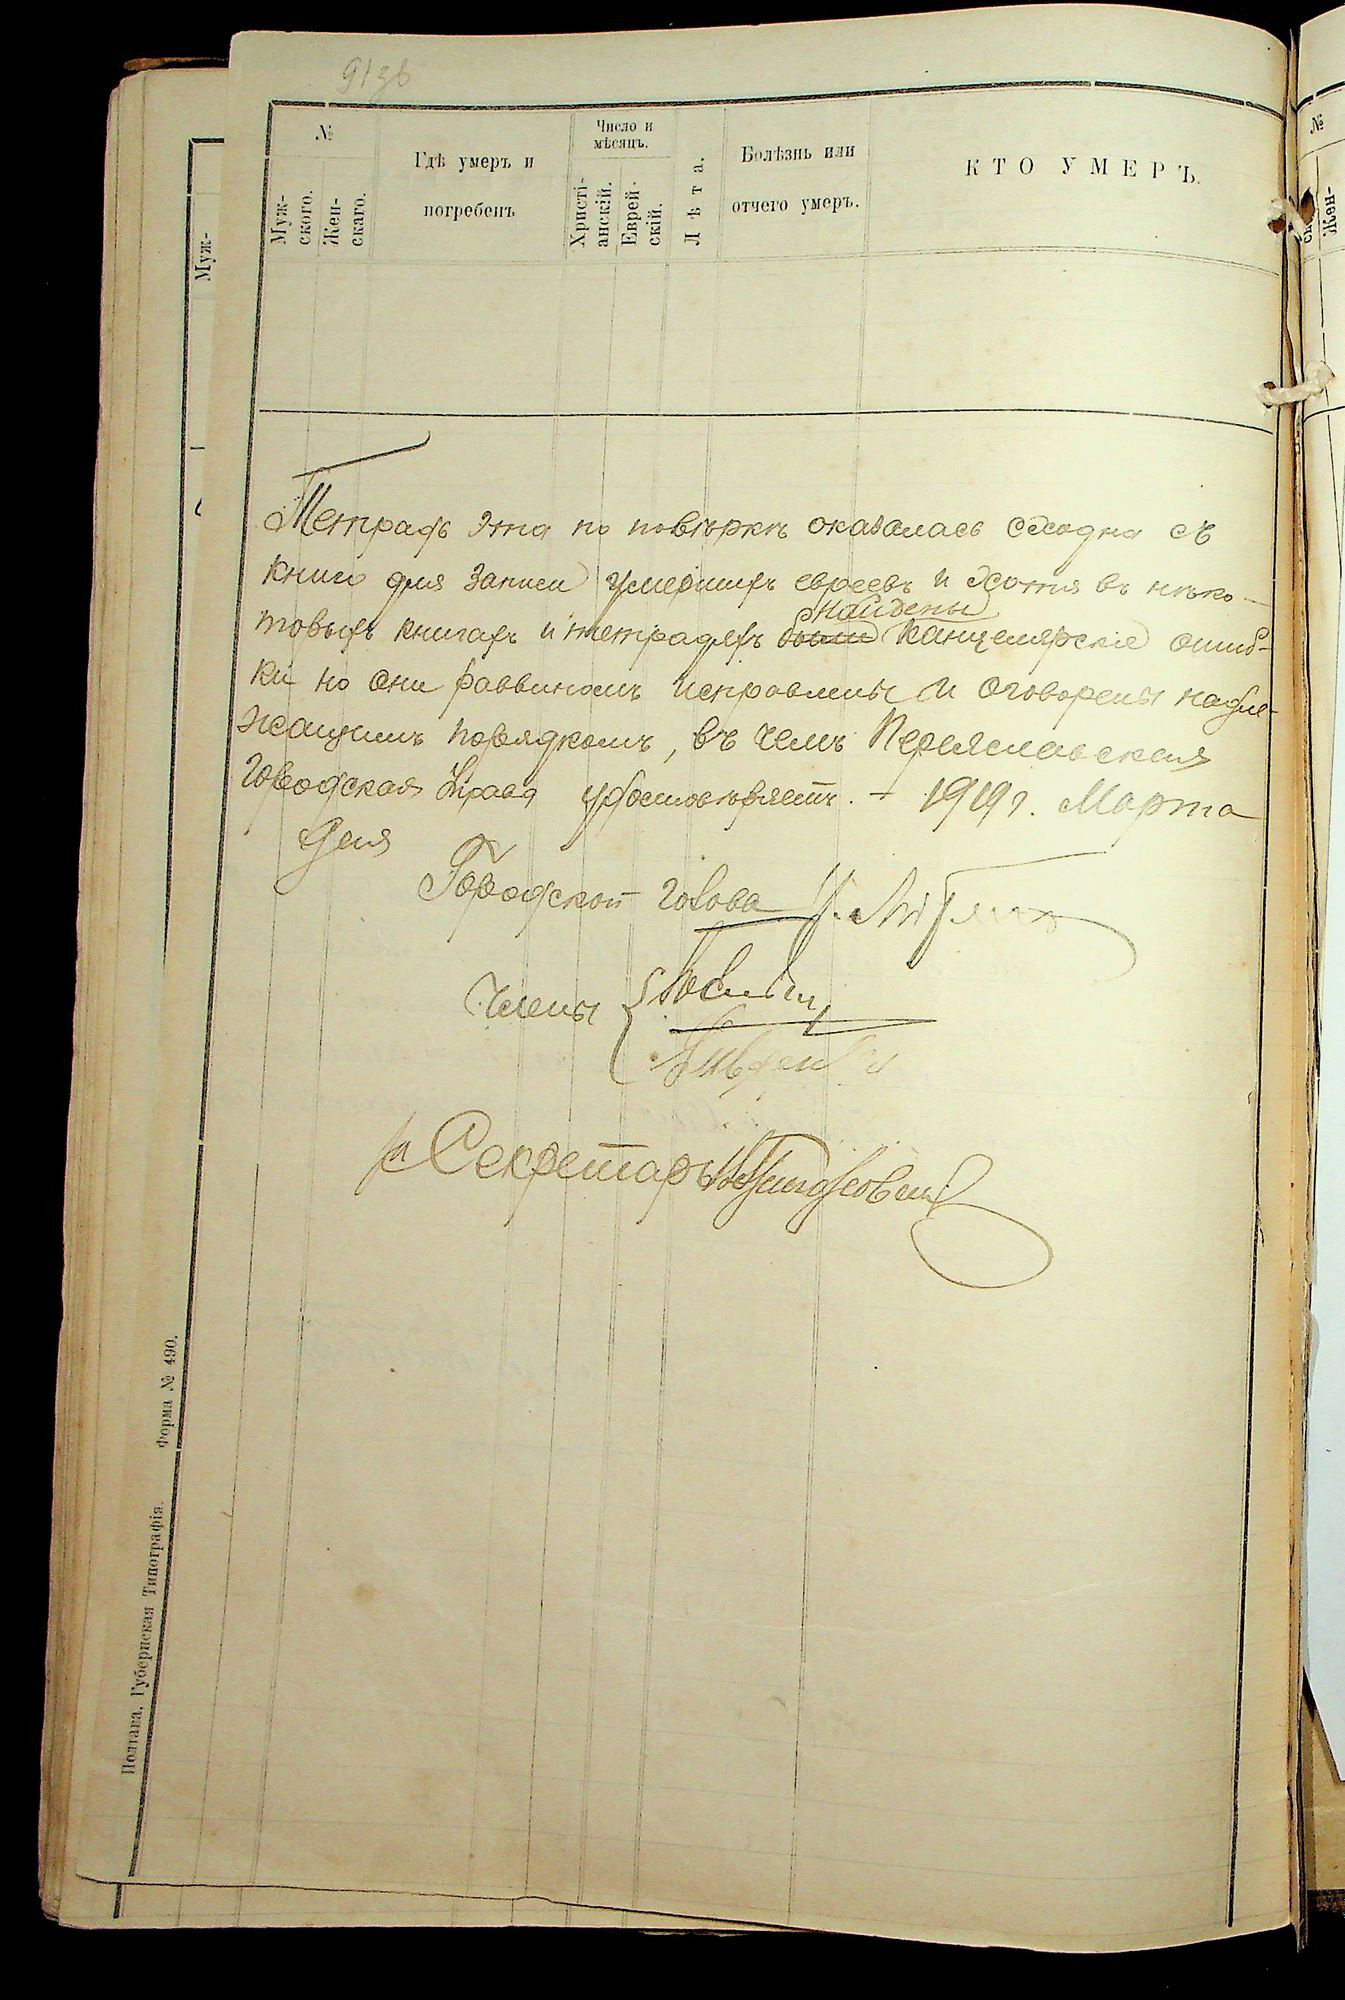 91 зв
№
Муж-
ского.
Жен-
скаго.
Гдѣ умеръ и
погребенъ
Число и
мѣсяцъ.
Христі-
анскій.
Еврей-
скій.
Лѣта.
Болѣзнь или
отчего умеръ.
КТО УМЕРЪ.
Тетрадь эта по повѣркѣ оказалась сходна съ
книгою для записи умершихъ евреевъ и хотя въ нѣко-
торыхъ книгахъ и тетрадяхъ были найдены канцелярскіе ошиб-
ки но они раввиномъ исправлены и оговорены надле-
жащимъ порядкомъ, въ чемъ Переяславская
Городская Управа удостовѣряетъ. – 1919 г. Марта
дня
Городской голова
Члены
Секретарь
Муж-
Полтава, Губернская Типографія. Форма № 490.
№
Жен-